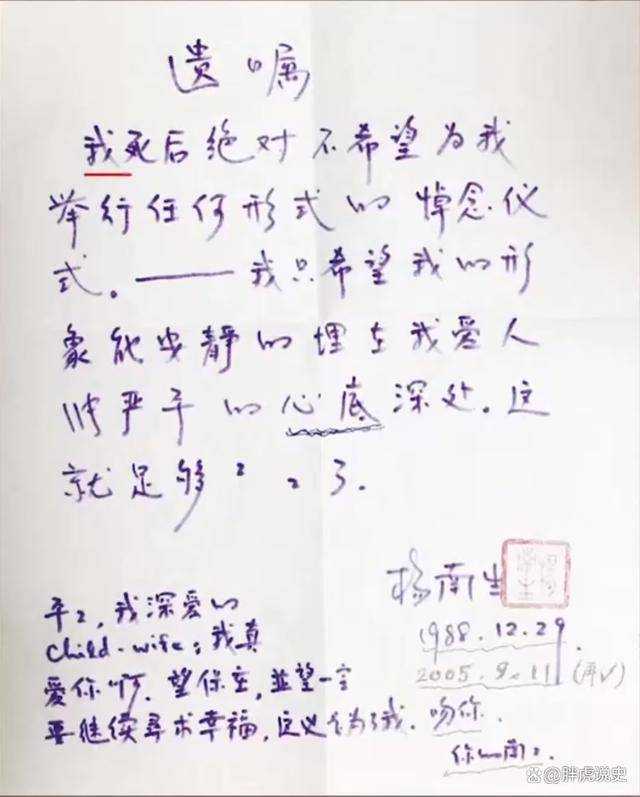 遗嘱
我死后绝对不希望为我
举行任何形式的悼念仪
式。——我只希望我的形
象能安静的埋在我爱人
严平的心底深处。这
就足够〻〻了.
杨南生
1988.12.29.
2005.9.11 (再)
平〻,我深爱的
child-wife:我真
爱你啊.望保重,並望一定
要继续寻求幸福,这又为了我.吻你.
你的南〻.
@胖虎说史